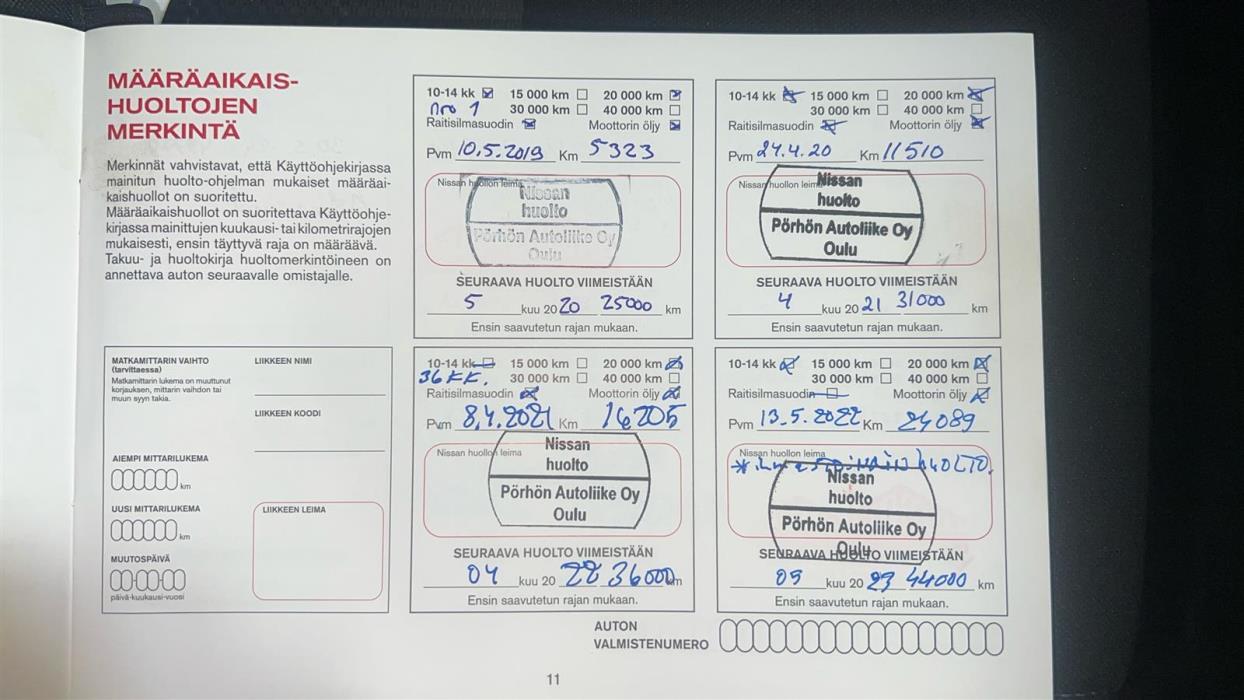 MÄÄRÄAIKAIS-
HUOLTOJEN
MERKINTÄ
Merkinnät vahvistavat, että Käyttöohjekirjassa
mainitun huolto-ohjelman mukaiset määräai-
kaishuollot on suoritettu.
Määräaikaishuollot on suoritettava Käyttöohje-
kirjassa mainittujen kuukausi- tai kilometrirajojen
mukaisesti, ensin täyttyvä raja on määräävä.
Takuu- ja huoltokirja huoltomerkintöineen on
annettava auton seuraavalle omistajalle.
MATKAMITTARIN VAIHTO
(tarvittaessa)
Matkamittarin lukema on muuttunut
korjauksen, mittarin vaihdon tai
muun syyn takia.
AIEMPI MITTARILUKEMA
km
UUSI MITTARILUKEMA
km
MUUTOSPÄIVÄ
päivä-kuukausi-vuosi
LIIKKEEN NIMI
LIIKKEEN KOODI
LIIKKEEN LEIMA
10-14 kk 15 000 km 20 000 km
nro 1 30 000 km 40 000 km
Raitisilmasuodin Moottorin öljy
Pvm 10.5.2019 Km 5323
Nissan huollon leima
Nissan
huolto
Pörhön Autoliike Oy
Oulu
SEURAAVA HUOLTO VIIMEISTÄÄN
5 kuu 20 20 25000 km
Ensin saavutetun rajan mukaan.
10-14 kk 15 000 km 20 000 km
30 000 km 40 000 km
Raitisilmasuodin Moottorin öljy
Pvm 24.4.20 Km 11510
Nissan huollon leima
Nissan
huolto
Pörhön Autoliike Oy
Oulu
SEURAAVA HUOLTO VIIMEISTÄÄN
4 kuu 20 21 31000 km
Ensin saavutetun rajan mukaan.
10-14 kk 15 000 km 20 000 km
36 KK. 30 000 km 40 000 km
Raitisilmasuodin Moottorin öljy
Pvm 8.4.2021 Km 16205
Nissan huollon leima
Nissan
huolto
Pörhön Autoliike Oy
Oulu
SEURAAVA HUOLTO VIIMEISTÄÄN
04 kuu 20 22 36000 km
Ensin saavutetun rajan mukaan.
10-14 kk 15 000 km 20 000 km
30 000 km 40 000 km
Raitisilmasuodin Moottorin öljy
Pvm 13.5.2022 Km 24089
Nissan huollon leima
HUOLTO.
Nissan
huolto
Pörhön Autoliike Oy
Oulu
SEURAAVA HUOLTO VIIMEISTÄÄN
05 kuu 20 23 44000 km
Ensin saavutetun rajan mukaan.
AUTON
VALMISTENUMERO
11